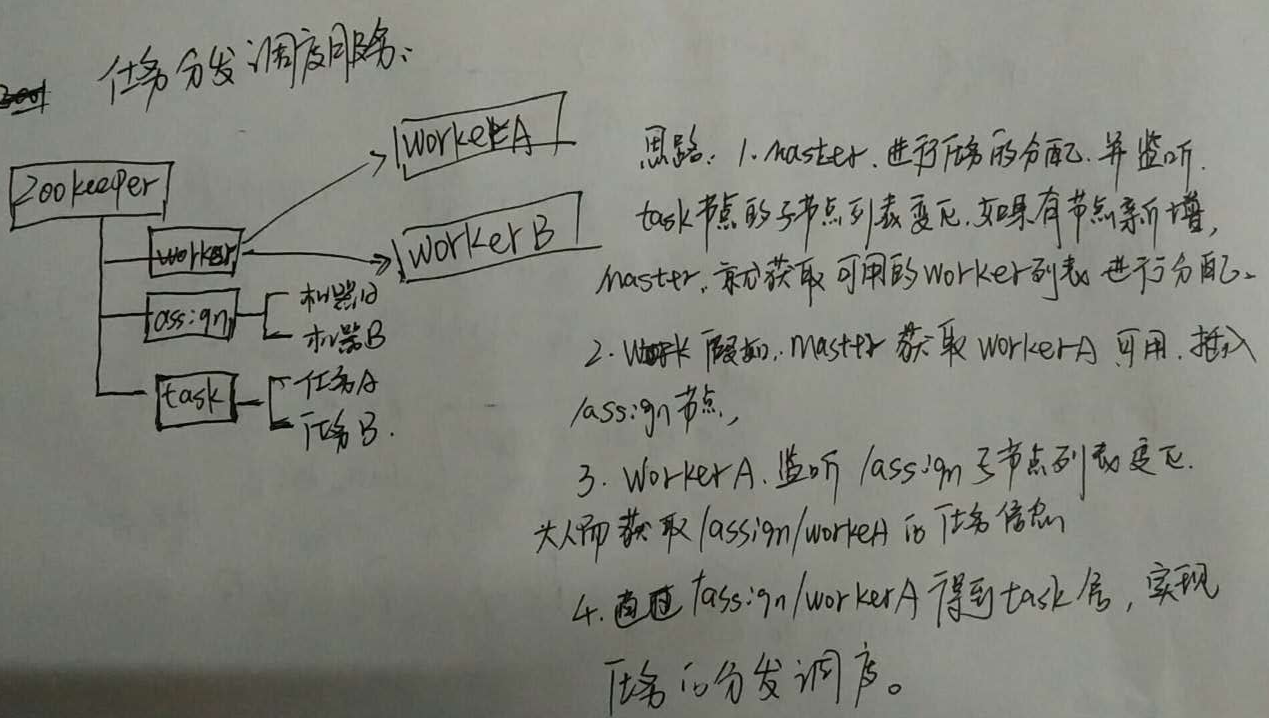 任务分发调度服务:
Zookeeper
worker
workerA
workerB
assign
机器A
机器B
task
任务A
任务B.
思路: 1. master. 进行任务的分配. 并监听.
task节点的子节点列表变化. 如果有节点新增,
master. 就获取可用的worker列表进行分配.
2. 假如. master 获取 workerA 可用. 插入
/assign节点,
3. WorkerA. 监听 /assign 子节点列表变化.
从而获取/assign/workeA的任务信息
4. 通过 /assign/workerA 得到task后, 实现
任务的分发调度。